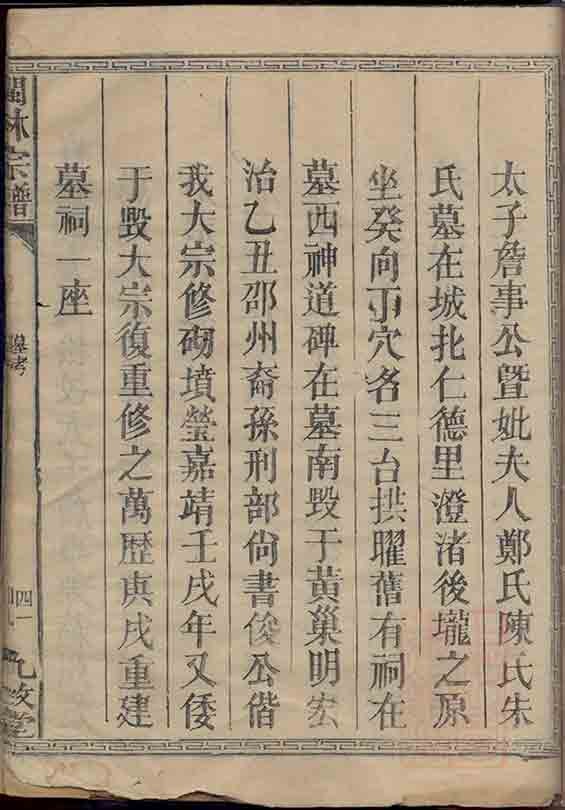 太子詹事公暨妣夫人鄭氏陳氏朱
氏墓在城北仁德里澄渚後壠之原
坐癸向丁穴名三台拱曜舊有祠在
墓西神道碑在墓南毀于黃巢明宏
治乙丑邵州裔孫刑部尙書俊公偕
我大宗修砌墳塋嘉靖壬戌年又倭
于毀大宗復重修之萬歷庚戌重建
墓祠一座
林宗譜
墓考
四